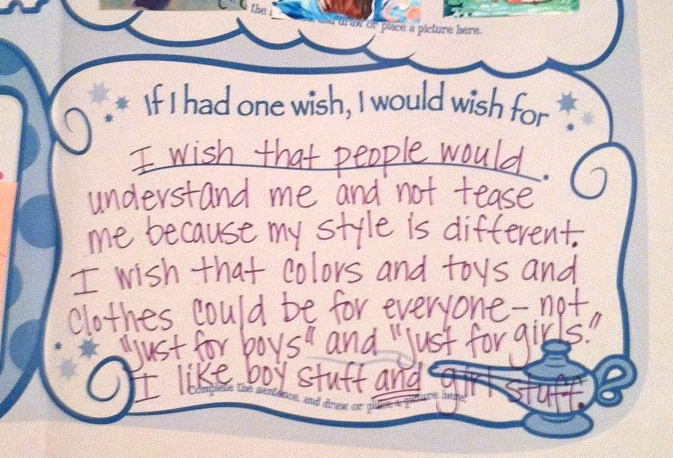 the
and draw or place a picture here.
If I had one wish, I would wish for
I wish that people would
understand me and not tease
me because my style is different.
I wish that colors and toys and
clothes could be for everyone - not
"just for boys" and "just for girls."
I like boy stuff and girl stuff.
Complete the sentence, and draw or place a picture here.